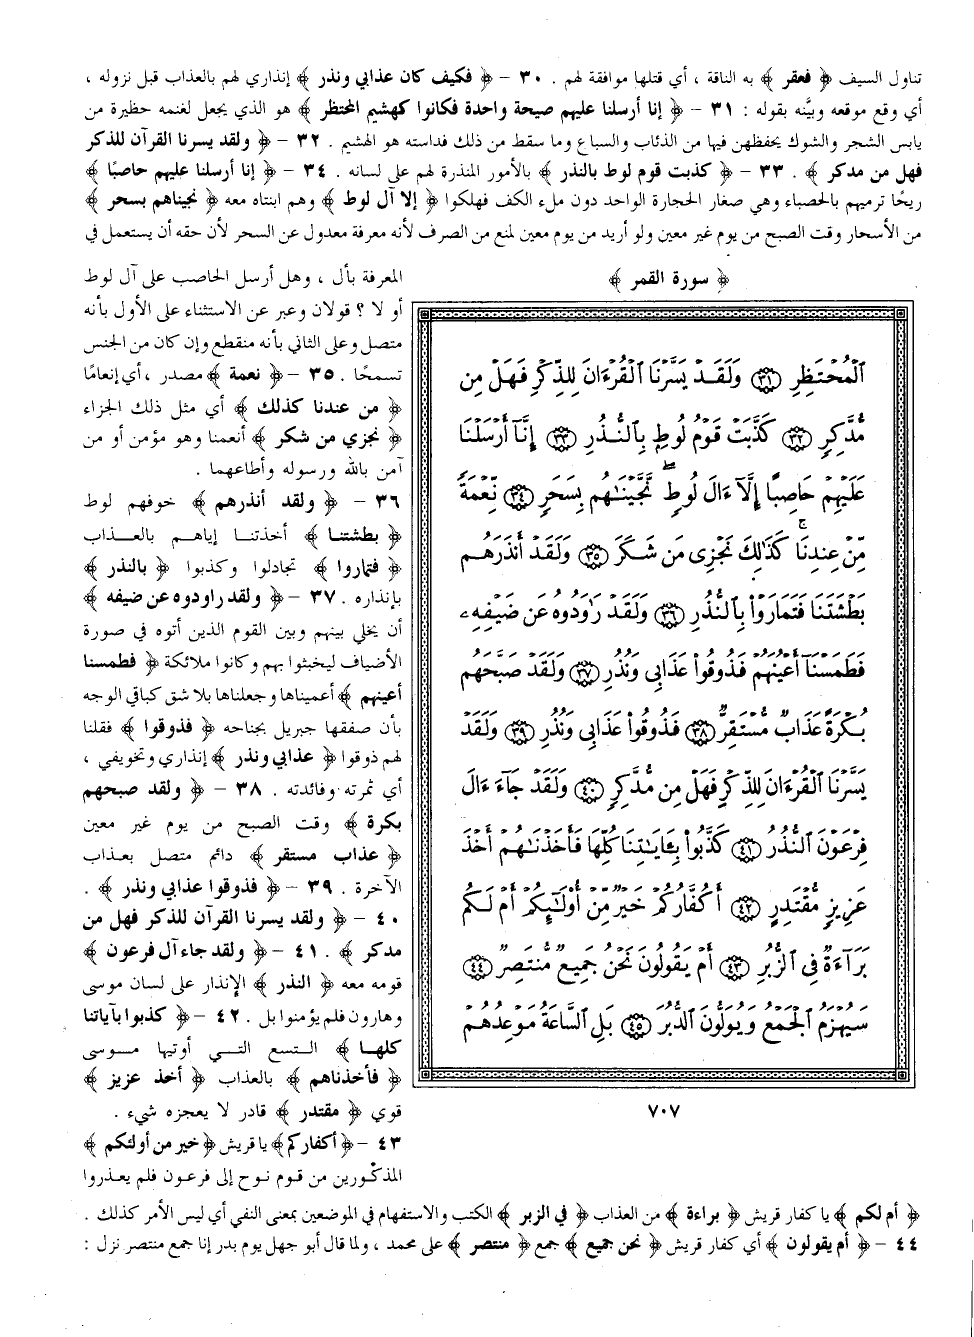 تناول السيف ﴿ فعقر ﴾ به الناقة ، أي قتلها موافقة لهم . ٣٠ - ﴿ فكيف كان عذابي ونذر ﴾ إنذاري لهم بالعذاب قبل نزوله ،
أي وقع موقعه وبيَّنه بقوله : ٣١ - ﴿ إنا أرسلنا عليهم صيحة واحدة فكانوا كهشيم المحتظر ﴾ هو الذي يجعل لغنمه حظيرة من
يابس الشجر والشوك يحفظهن فيها من الذئاب والسباع وما سقط من ذلك فداسته هو الهشيم . ٣٢ - ﴿ ولقد يسرنا القرآن للذكر
فهل من مدكر ﴾ . ٣٣ - ﴿ كذبت قوم لوط بالنذر ﴾ بالأمور المنذرة لهم على لسانه . ٣٤ - ﴿ إنا أرسلنا عليهم حاصبًا ﴾
ريحًا ترميهم بالحصباء وهي صغار الحجارة الواحد دون ملء الكف فهلكوا ﴿ إلا آل لوط ﴾ وهم ابنتاه معه ﴿ نجيناهم بسحر ﴾
من الأسحار وقت الصبح من يوم غير معين ولو أريد من يوم معين لمنع من الصرف لأنه معرفة معدول عن السحر لأن حقه أن يستعمل في
المعرفة بأل ، وهل أرسل الحاصب على آل لوط
أو لا ؟ قولان وعبر عن الاستثناء على الأول بأنه
متصل وعلى الثاني بأنه منقطع وإن كان من الجنس
تسمحًا . ٣٥ - ﴿ نعمة ﴾ مصدر ، أي إنعامًا
﴿ من عندنا كذلك ﴾ أي مثل ذلك الجزاء
﴿ نجزي من شكر ﴾ أنعمنا وهو مؤمن أو من
آمن بالله ورسوله وأطاعهما .
٣٦ - ﴿ ولقد أنذرهم ﴾ خوفهم لوط
﴿ بطشتنا ﴾ أخذتنا إياهم بالعذاب
﴿ فتماروا ﴾ تجادلوا وكذبوا ﴿ بالنذر ﴾
بإنذاره . ٣٧ - ﴿ ولقد راودوه عن ضيفه ﴾
أن يخلي بينهم وبين القوم الذين أتوه في صورة
الأضياف ليخبثوا بهم وكانوا ملائكة ﴿ فطمسنا
أعينهم ﴾ أعميناها وجعلناها بلا شق كباقي الوجه
بأن صفقها جبريل بجناحه ﴿ فذوقوا ﴾ فقلنا
لهم ذوقوا ﴿ عذابي ونذر ﴾ إنذاري وتخويفي ،
أي ثمرته وفائدته . ٣٨ - ﴿ ولقد صبحهم
بكرة ﴾ وقت الصبح من يوم غير معين
﴿ عذاب مستقر ﴾ دائم متصل بعذاب
الآخرة . ٣٩ - ﴿ فذوقوا عذابي ونذر ﴾ .
٤٠ - ﴿ ولقد يسرنا القرآن للذكر فهل من
مدكر ﴾ . ٤١ - ﴿ ولقد جاء آل فرعون ﴾
قومه معه ﴿ النذر ﴾ الإنذار على لسان موسى
وهارون فلم يؤمنوا بل . ٤٢ - ﴿ كذبوا بآياتنا
كلها ﴾ التسع التي أوتيها موسى
﴿ فأخذناهم ﴾ بالعذاب ﴿ أخذ عزيز ﴾
قوي ﴿ مقتدر ﴾ قادر لا يعجزه شيء .
٤٣ - ﴿ أكفاركم ﴾ يا قريش ﴿ خير من أولئكم ﴾
المذكورين من قوم نوح إلى فرعون فلم يعذروا
﴿ سورة القمر ﴾
ٱلْمُحْتَظِرِ ٣١ وَلَقَدْ يَسَّرْنَا ٱلْقُرْءَانَ لِلذِّكْرِ فَهَلْ مِن
مُّدَّكِرٍ ٣٢ كَذَّبَتْ قَوْمُ لُوطٍ بِٱلنُّذُرِ ٣٣ إِنَّآ أَرْسَلْنَا
عَلَيْهِمْ حَاصِبًا إِلَّآ ءَالَ لُوطٍ ۖ نَّجَّيْنَٰهُم بِسَحَرٍ ٣٤ نِّعْمَةً
مِّنْ عِندِنَا ۚ كَذَٰلِكَ نَجْزِى مَن شَكَرَ ٣٥ وَلَقَدْ أَنذَرَهُم
بَطْشَتَنَا فَتَمَارَوْا۟ بِٱلنُّذُرِ ٣٦ وَلَقَدْ رَٰوَدُوهُ عَن ضَيْفِهِۦ
فَطَمَسْنَآ أَعْيُنَهُمْ فَذُوقُوا۟ عَذَابِى وَنُذُرِ ٣٧ وَلَقَدْ صَبَّحَهُم
بُكْرَةً عَذَابٌ مُّسْتَقِرٌّ ٣٨ فَذُوقُوا۟ عَذَابِى وَنُذُرِ ٣٩ وَلَقَدْ
يَسَّرْنَا ٱلْقُرْءَانَ لِلذِّكْرِ فَهَلْ مِن مُّدَّكِرٍ ٤٠ وَلَقَدْ جَآءَ ءَالَ
فِرْعَوْنَ ٱلنُّذُرُ ٤١ كَذَّبُوا۟ بِـَٔايَٰتِنَا كُلِّهَا فَأَخَذْنَٰهُمْ أَخْذَ
عَزِيزٍ مُّقْتَدِرٍ ٤٢ أَكُفَّارُكُمْ خَيْرٌ مِّنْ أُو۟لَٰٓئِكُمْ أَمْ لَكُم
بَرَآءَةٌ فِى ٱلزُّبُرِ ٤٣ أَمْ يَقُولُونَ نَحْنُ جَمِيعٌ مُّنتَصِرٌ ٤٤
سَيُهْزَمُ ٱلْجَمْعُ وَيُوَلُّونَ ٱلدُّبُرَ ٤٥ بَلِ ٱلسَّاعَةُ مَوْعِدُهُمْ
٧٠٧
﴿ أم لكم ﴾ يا كفار قريش ﴿ براءة ﴾ من العذاب ﴿ في الزبر ﴾ الكتب والاستفهام في الموضعين بمعنى النفي أي ليس الأمر كذلك .
٤٤ - ﴿ أم يقولون ﴾ أي كفار قريش ﴿ نحن جميع ﴾ جمع ﴿ منتصر ﴾ على محمد ، ولما قال أبو جهل يوم بدر إنا جمع منتصر نزل :